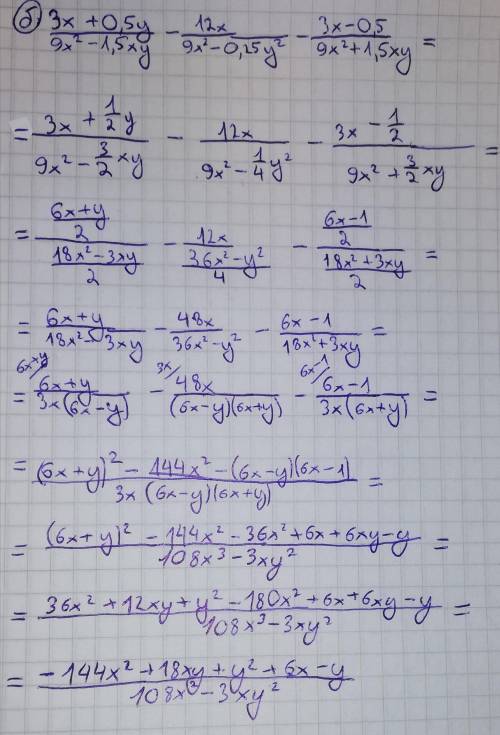 б) (3x + 0,5y)/(9x² - 1,5xy) - 12x/(9x² - 0,25y²) - (3x - 0,5)/(9x² + 1,5xy) =
= (3x + 1/2 y)/(9x² - 3/2 xy) - 12x/(9x² - 1/4 y²) - (3x - 1/2)/(9x² + 3/2 xy) =
= ((6x + y)/2)/((18x² - 3xy)/2) - 12x/((36x² - y²)/4) - ((6x - 1)/2)/((18x² + 3xy)/2) =
= (6x + y)/(18x² - 3xy) - 48x/(36x² - y²) - (6x - 1)/(18x² + 3xy) =
= (6x + y)/(3x(6x - y)) - 3x/ 48x/((6x - y)(6x + y)) - (6x - 1)/(3x(6x + y)) =
= ((6x + y)² - 144x² - (6x - y)(6x - 1))/(3x(6x - y)(6x + y)) =
= ((6x + y)² - 144x² - 36x² + 6x + 6xy - y)/(108x³ - 3xy²) =
= (36x² + 12xy + y² - 180x² + 6x + 6xy - y)/(108x³ - 3xy²) =
= (-144x² + 18xy + y² + 6x - y)/(108x³ - 3xy²)